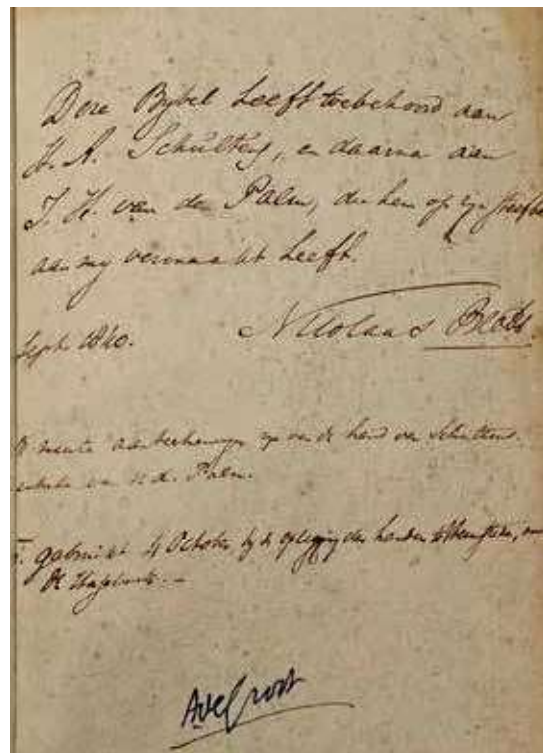 Deze Bybel heeft toebehoord aan
H. A. Schultens, en daarna aan
J. H. van der Palm, die hem op zyn sterfbe
aan my vermaakt heeft.
Sept. 1840. Nicolaas Beets.
meeste aanteekeningen zyn van de hand van Schultens.
van v. d. Palm.
gebruikt 4 October by de oplegging der handen te Heemstede,